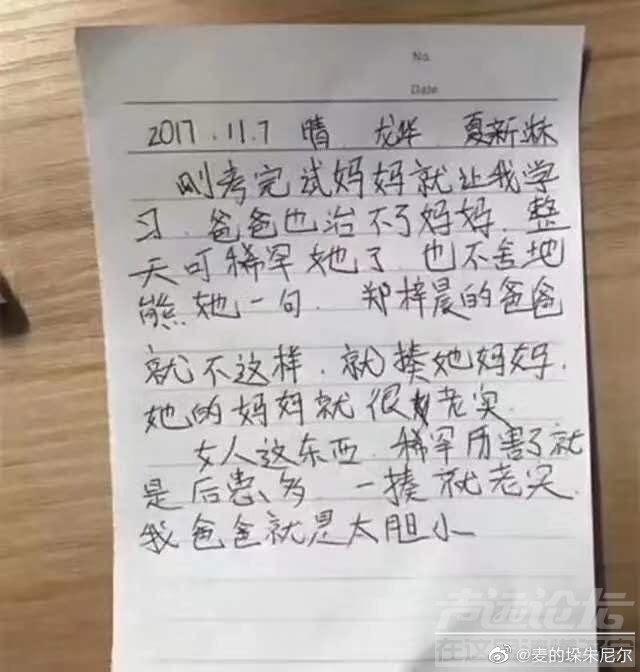 No.
Date
2017.11.7 晴 龙华 夏新淋
刚考完试妈妈就让我学
习.爸爸也治不了妈妈.整
天可稀罕她了.也不舍地
熊她一句. 郑梓晨的爸爸
就不这样.就揍她妈妈.
她的妈妈就很老实
女人这东西.稀罕厉害了就
是后患多 一揍就老实.
我爸爸就是太胆小
@麦的垛朱尼尔